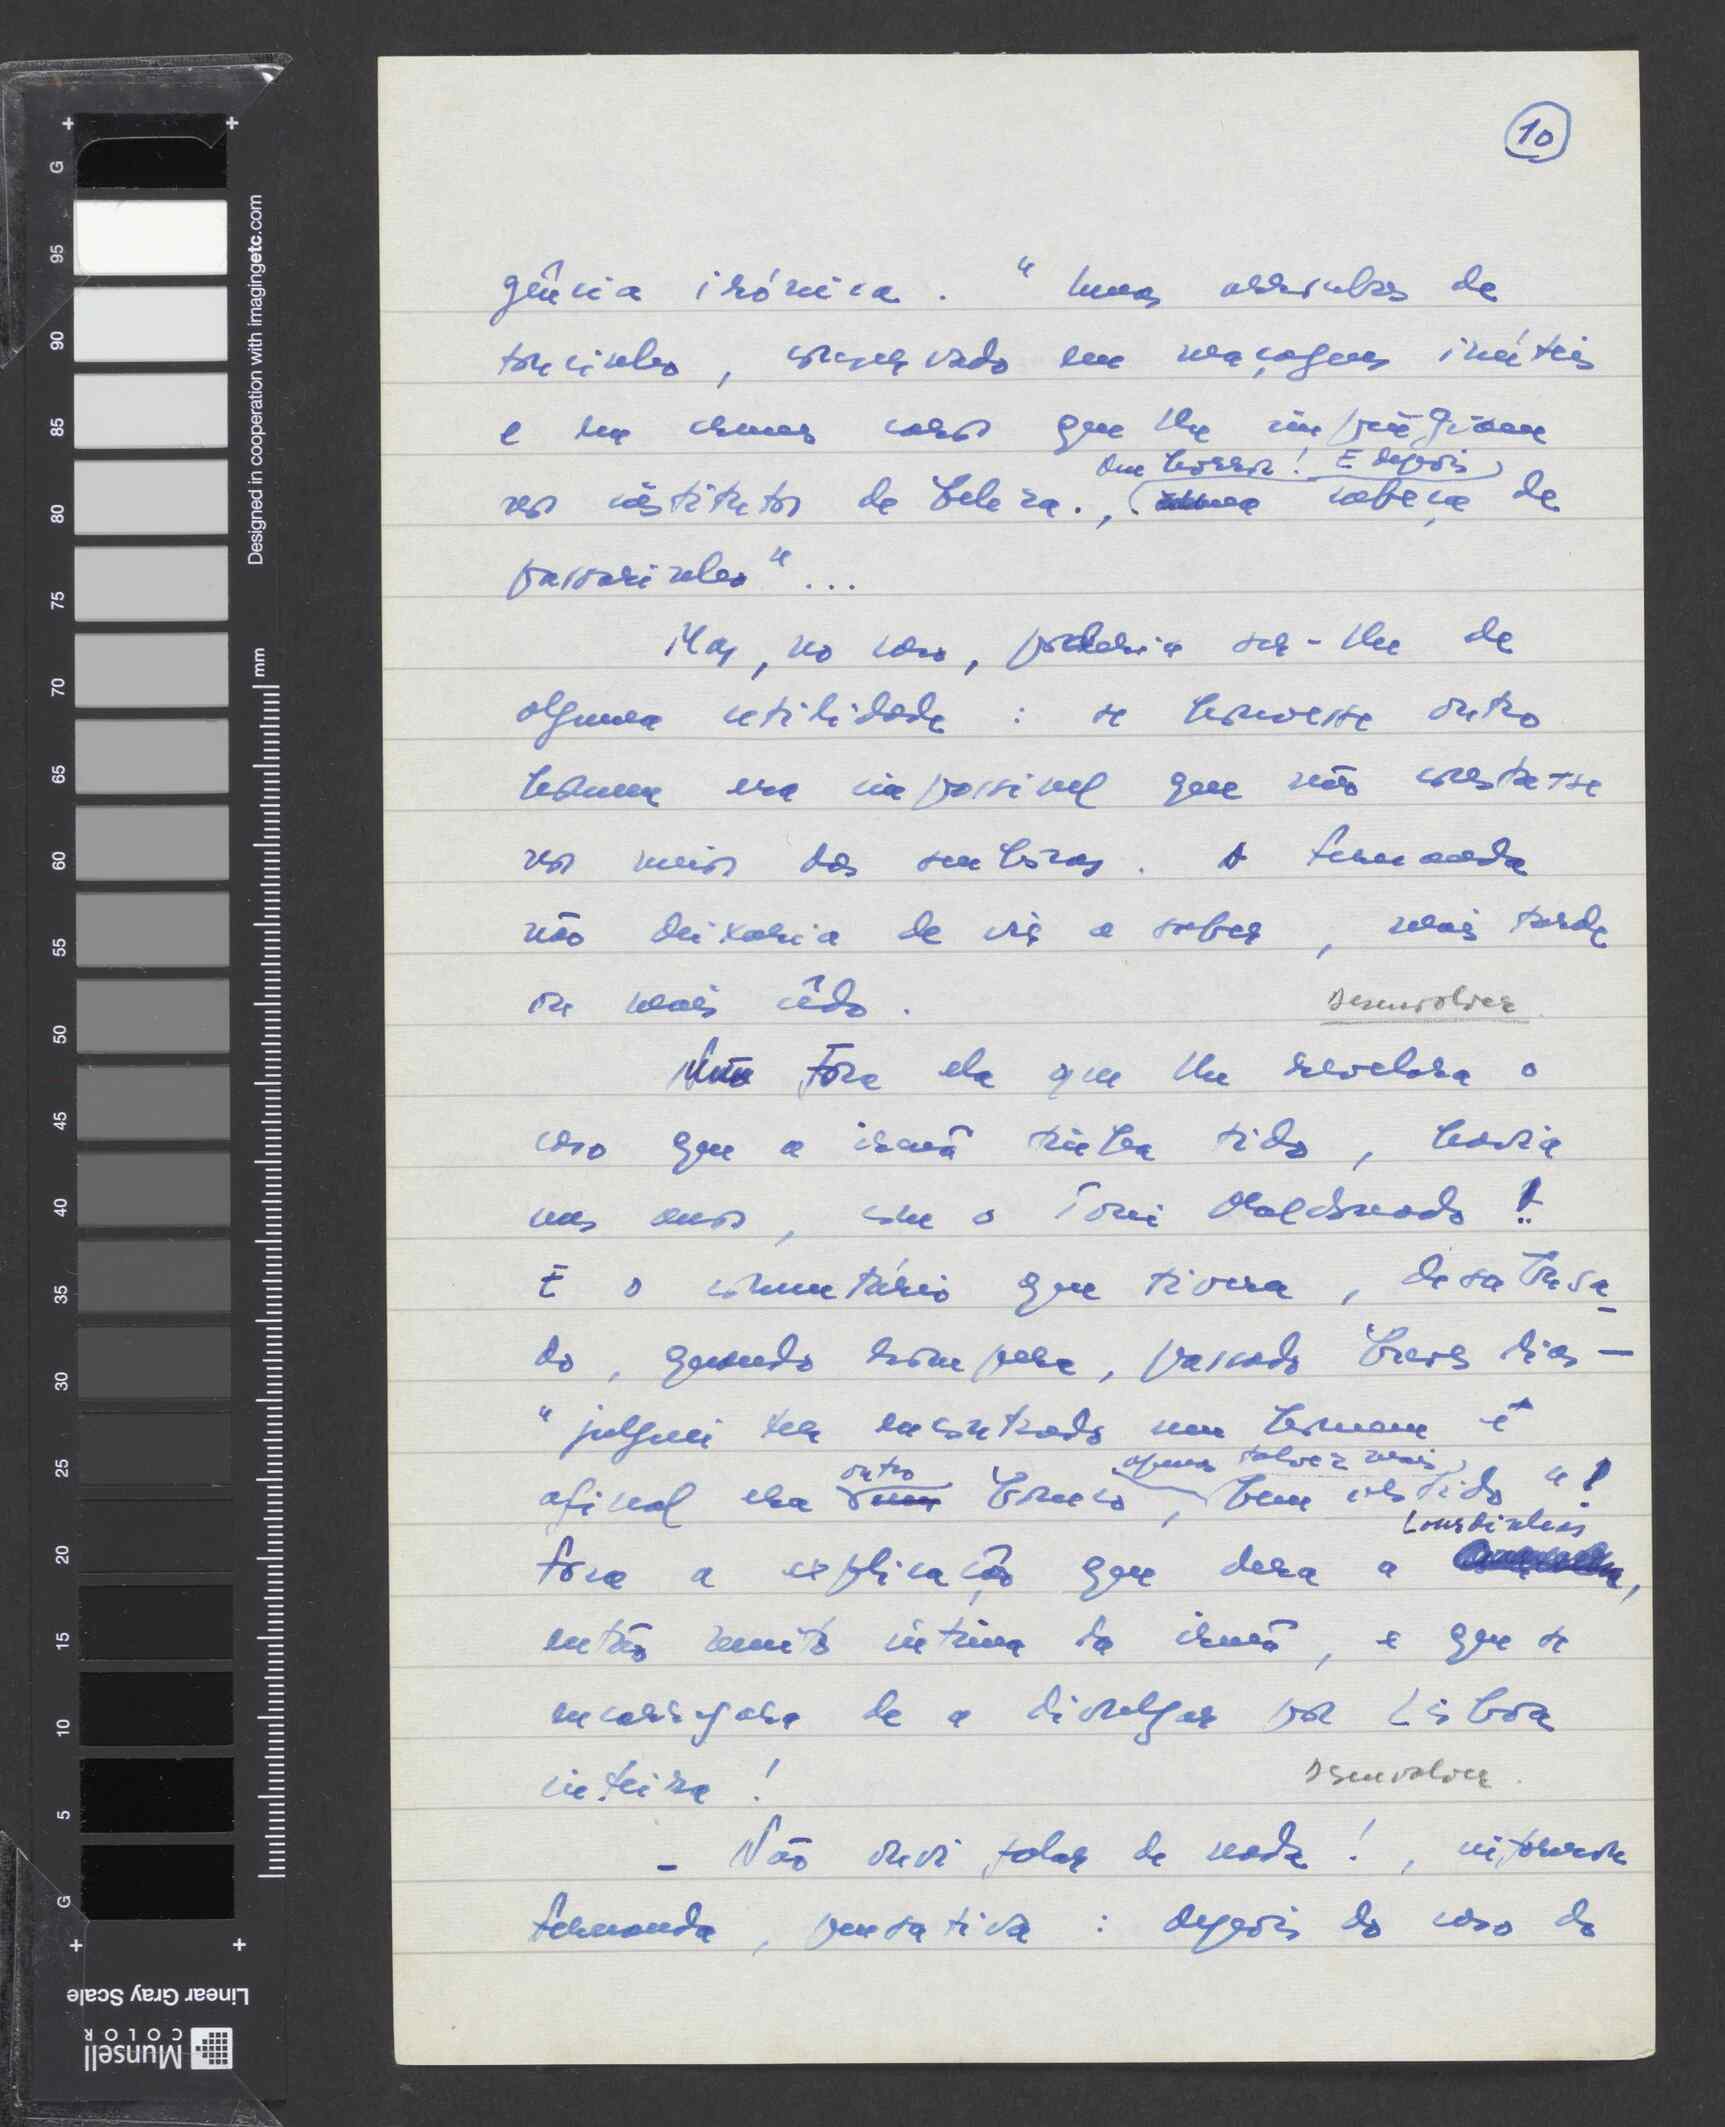 10
gência irónica. "Umas arrobas de
toucinho, conservado em maçagens inúteis
e em cremes caros que lhe impingiam
nos institutos de beleza., Que horror! E depois cabeça de
passarinho"...
Mas, no caso, poderia ser-lhe de
alguma utilidade: se houvesse outro
homem era impossivel que não constasse
no meio das senhoras. A Fernanda
não deixaria de vir a saber, mais tarde
ou mais cêdo.
Desenvolver
Não fôra ela que lhe revelara o
caso que a irmã tinha tido, havia
uns anos, com o Toni Maldonado!
E o comentário que tivera, desabusa-
do, quando rompera, passado breves dias —
"julguei ter encontrado um homem e
afinal era outro boneco, apenas talvez mais bem vestido"!
fora a explicação que dera a Lourdinhas,
então muito intima da irmã, e que se
encarregara de a divulgar por Lisboa
inteira!
Desenvolver.
- Não ouvi falar de nada!, informou
Fernanda, pensativa: depois do caso do
G 95 90 85 80 75 70 65 60 55 50 45 40 35 30 25 20 15 10 5 G
Designed in cooperation with imagingetc.com
mm
Linear Gray Scale
Munsell
COLOR